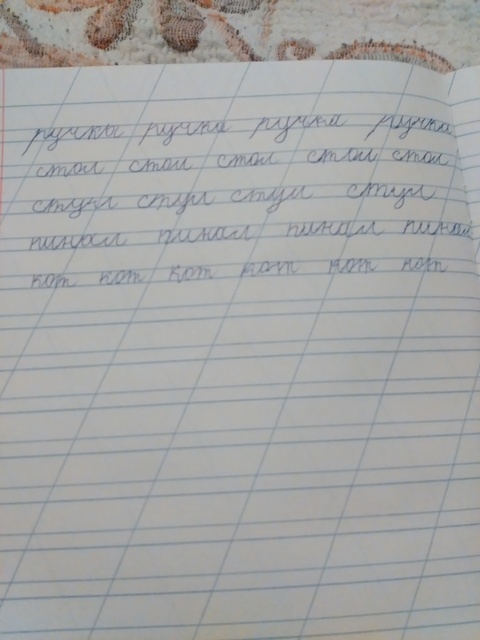 ручка ручка ручка ручка
стол стол стол стол стол
стул стул стул стул
пинал пинал пинал пинал
кот кот кот кот кот кот